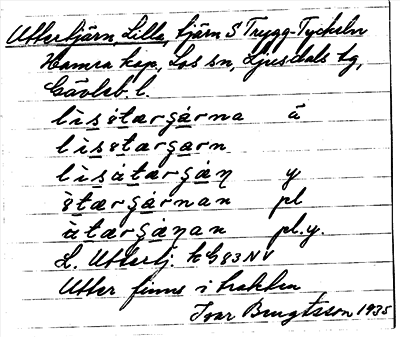 Uttertjärn, Lilla, tjärn S Trygg-Tyckeln
Hamra kap, Los sn, Ljusdals tg,
Gävleb. l.
lisetærgárna ä
lisetærgarn
lisátærgáɳ y
ètærgárnan pl
ùtærgáɳan pl.y.
L. Uttertj. kG83NV
Utter finns i trakten
Ivar Bengtsson 1935